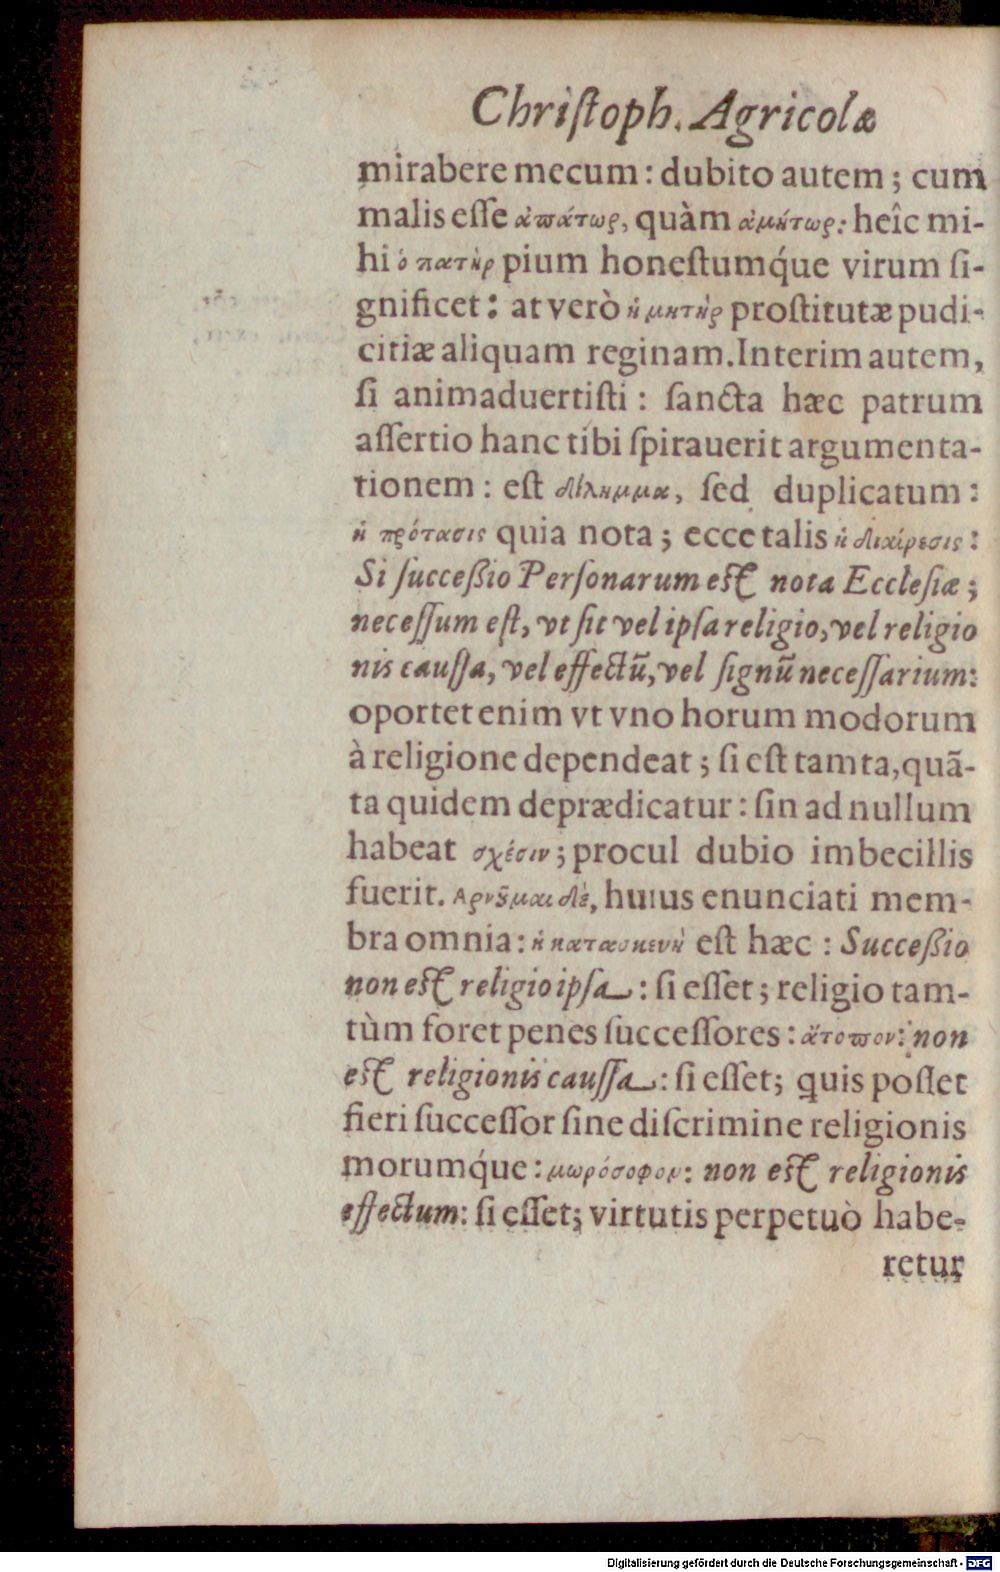 Chriſtoph. Agricolæ
mirabere mecum: dubito autem; cum
malis eſſe ἀπάτωρ, quàm ἀμήτωρ: heîc mi-
hi ὁ πατὴρ pium honeſtumq́ue virum ſi-
gnificet: at verò ἡ μητὴρ proſtitutæ pudi-
citiæ aliquam reginam. Interim autem,
ſi animaduertiſti: ſancta hæc patrum
aſſertio hanc tibi ſpirauerit argumenta-
tionem: eſt δίλημμα, ſed duplicatum:
ἡ πρότασις quia nota; ecce talis ἡ διαίρεσις:
Si ſucceßio Perſonarum eſt nota Eccleſiæ;
neceſſum eſt, vt ſit vel ipſa religio, vel religio
nis cauſſa, vel effectũ, vel ſignũ neceſſarium:
oportet enim vt vno horum modorum
à religione dependeat; ſi eſt tam ta, quã-
ta quidem deprædicatur: ſin ad nullum
habeat σχέσιν; procul dubio imbecillis
fuerit. Αρνȣ͂μαι δὲ, huius enunciati mem-
bra omnia: ἡ κατασκευὴ eſt hæc: Succeßio
non eſt religio ipſa: ſi eſſet; religio tam-
tùm foret penes ſucceſſores: ἄτοπον: non
eſt religionis cauſſa: ſi eſſet; quis poſſet
fieri ſucceſſor ſine diſcrimine religionis
morumq́ue: μωρόσοφον: non eſt religionis
effectum: ſi eſſet; virtutis perpetuò habe-
retur
Digitalisierung gefördert durch die Deutsche Forschungsgemeinschaft - DFG